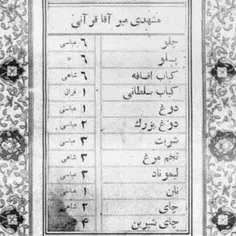 مشهدی میر آقا قرآنی
چلو ۶ عباسی
پلو ۶ "
کباب اضافه ۶ شاهی
کباب سلطانی ۱ قران
دوغ ۱ عباسی
دوغ بزرگ ۲ عباسی
شربت ۳ عباسی
تخم مرغ ۳ شاهی
لیموناد ۳ عباسی
نان ۱ عباسی
چای ۲ شاهی
چای شیرین ۴